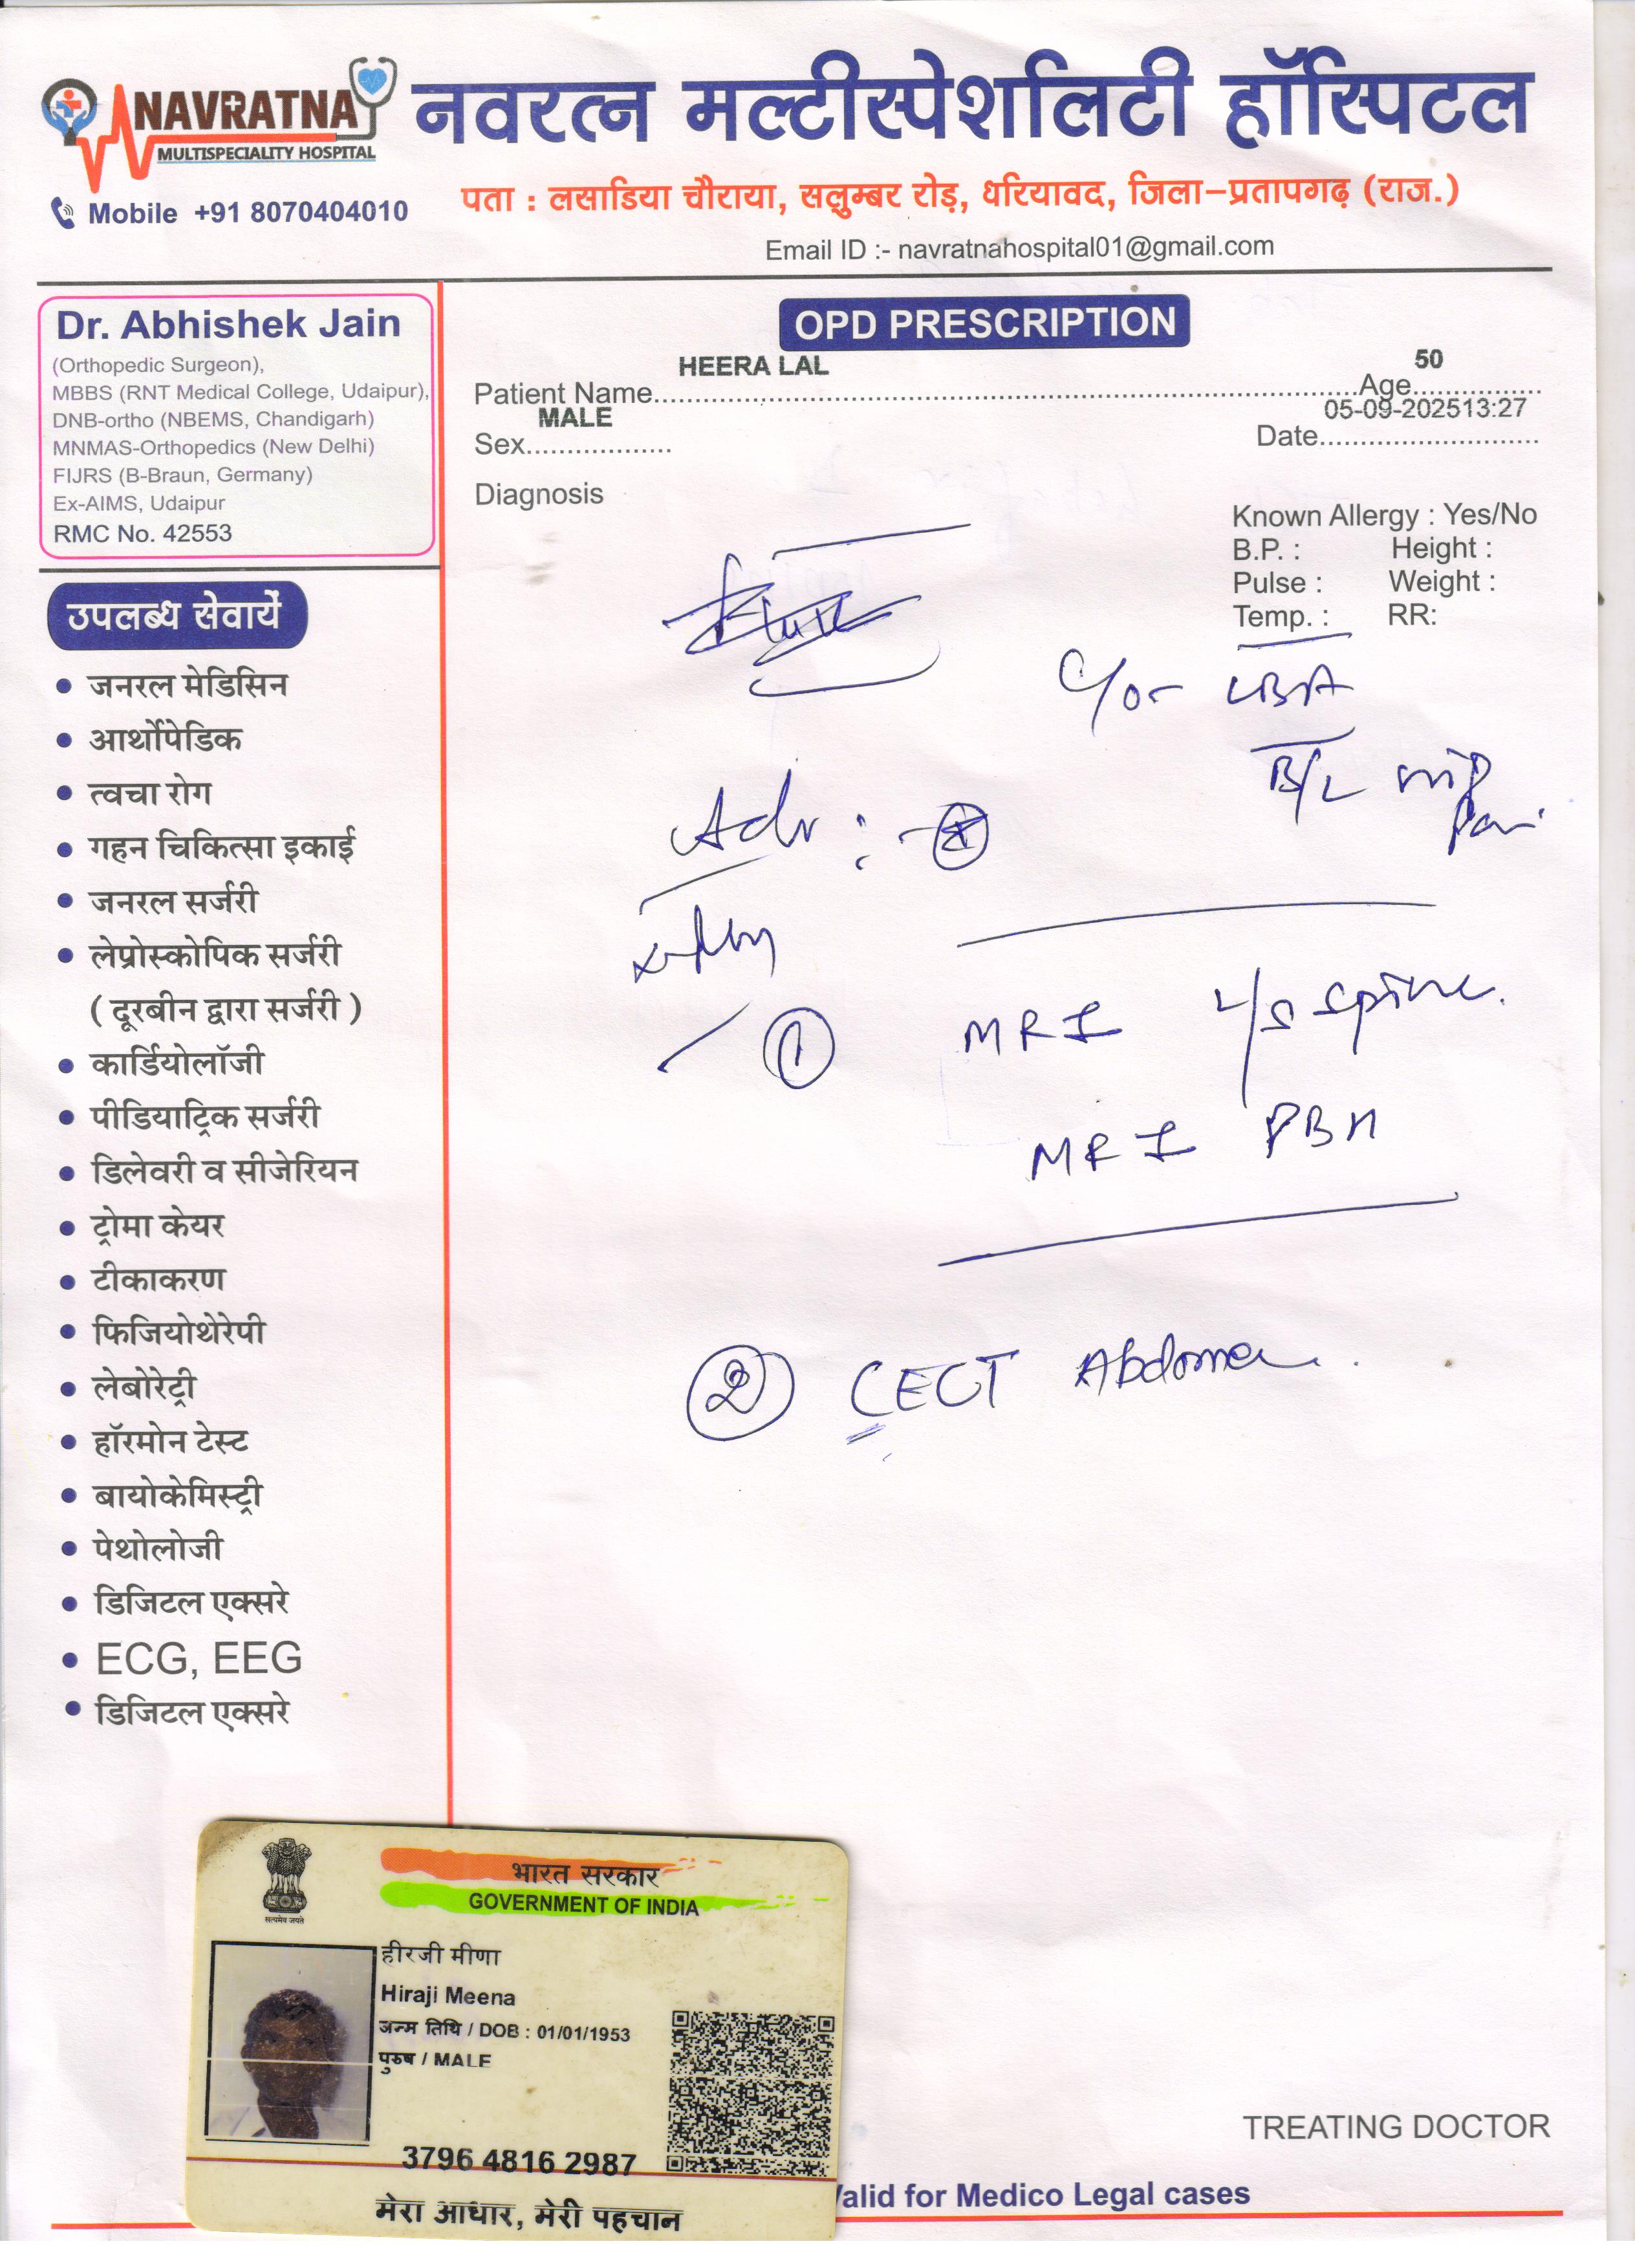 NAVRATNA
MULTISPECIALITY HOSPITAL
नवरत्न मल्टीस्पेशलिटी हॉस्पिटल
Mobile +91 8070404010
पता : लसाडिया चौराया, सलुम्बर रोड़, धरियावद, जिला-प्रतापगढ़ (राज.)
Email ID :- navratnahospital01@gmail.com
Dr. Abhishek Jain
(Orthopedic Surgeon),
MBBS (RNT Medical College, Udaipur),
DNB-ortho (NBEMS, Chandigarh)
MNMAS-Orthopedics (New Delhi)
FIJRS (B-Braun, Germany)
Ex-AIMS, Udaipur
RMC No. 42553
उपलब्ध सेवायें
जनरल मेडिसिन
आर्थोपेडिक
त्वचा रोग
गहन चिकित्सा इकाई
जनरल सर्जरी
लेप्रोस्कोपिक सर्जरी
( दूरबीन द्वारा सर्जरी )
कार्डियोलॉजी
पीडियाट्रिक सर्जरी
डिलेवरी व सीजेरियन
ट्रोमा केयर
टीकाकरण
फिजियोथेरेपी
लेबोरेट्री
हॉरमोन टेस्ट
बायोकेमिस्ट्री
पेथोलोजी
डिजिटल एक्सरे
ECG, EEG
डिजिटल एक्सरे
OPD PRESCRIPTION
Patient Name HEERA LAL Age 50
Sex MALE Date 05-09-202513:27
Diagnosis
Known Allergy : Yes/No
B.P. : Height :
Pulse : Weight :
Temp. : RR:
C/o- LBA
B/L
Adv :-
① MRI L/S Spine.
MRI PBH
② CECT Abdomen.
भारत सरकार
GOVERNMENT OF INDIA
सत्यमेव जयते
हीरजी मीणा
Hiraji Meena
जन्म तिथि / DOB : 01/01/1953
पुरुष / MALE
3796 4816 2987
मेरा आधार, मेरी पहचान
TREATING DOCTOR
alid for Medico Legal cases